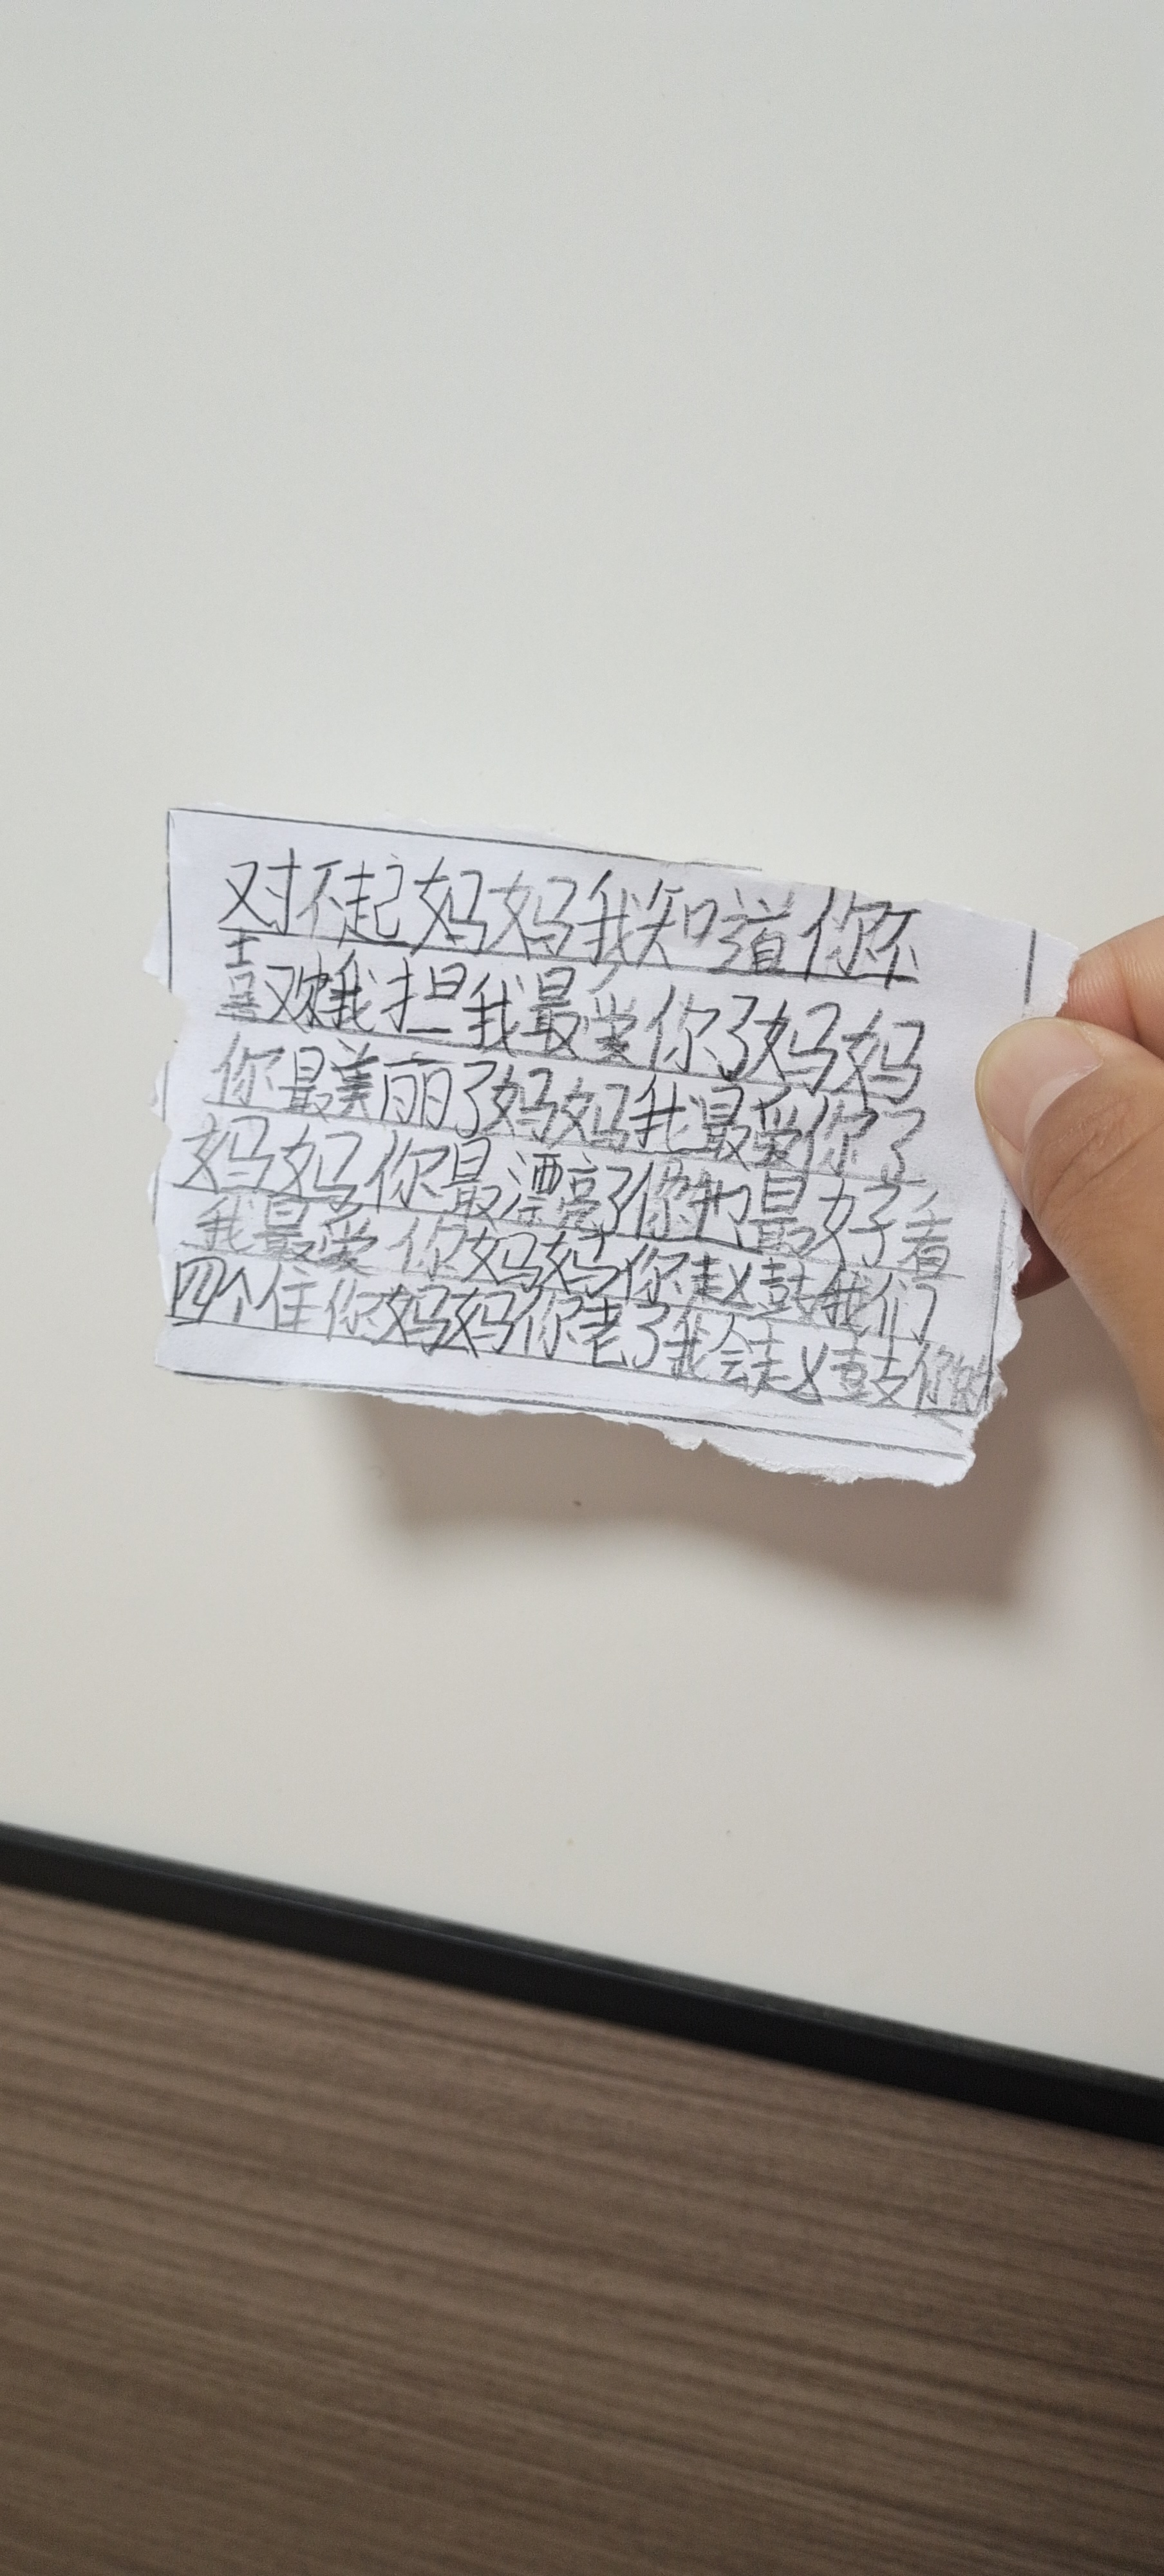 对不起妈妈我知道你不
喜欢我担我最爱你了妈妈
你最美丽了妈妈我最爱你了
妈妈你最漂亮了你也最好看
我最爱你妈妈你赵鼓我们
四个住你妈妈你老了我会赵鼓你